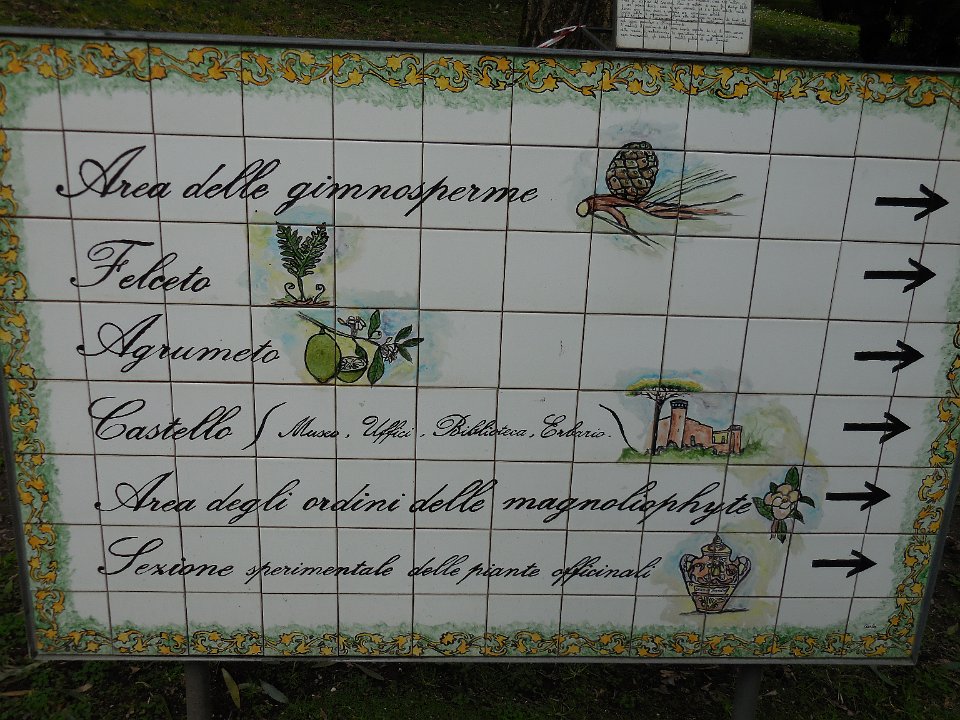 Area delle gimnosperme
Felceto
Agrumeto
Castello (Museo, Uffici, Biblioteca, Erbario.)
Area degli ordini delle magnoliophyte
Sezione sperimentale delle piante officinali